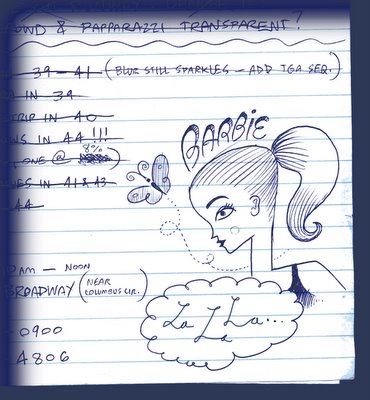 OWD & PAPPARAZZI TRANSPARENT?
39 - 41 (BLUR STILL SPARKLES - ADD TGA SEQ.)
IN 39
TRIP IN 40
WS IN 44 !!!
8%
ONE @ )
IN 41 & 43
44
BARBIE
AM - NOON
BROADWAY (NEAR COLUMBUS CIR.)
La La La...
La
-0900
4806